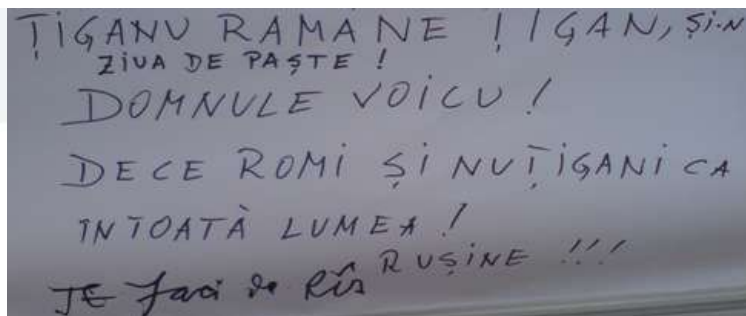 ȚIGANU RAMÂNE ȚIGAN, ȘI-N
ZIUA DE PAȘTE !
DOMNULE VOICU !
DECE ROMI ȘI NUȚIGANI CA
INTOATĂ LUMEA !
TE faci de Rîs RUȘINE !!!